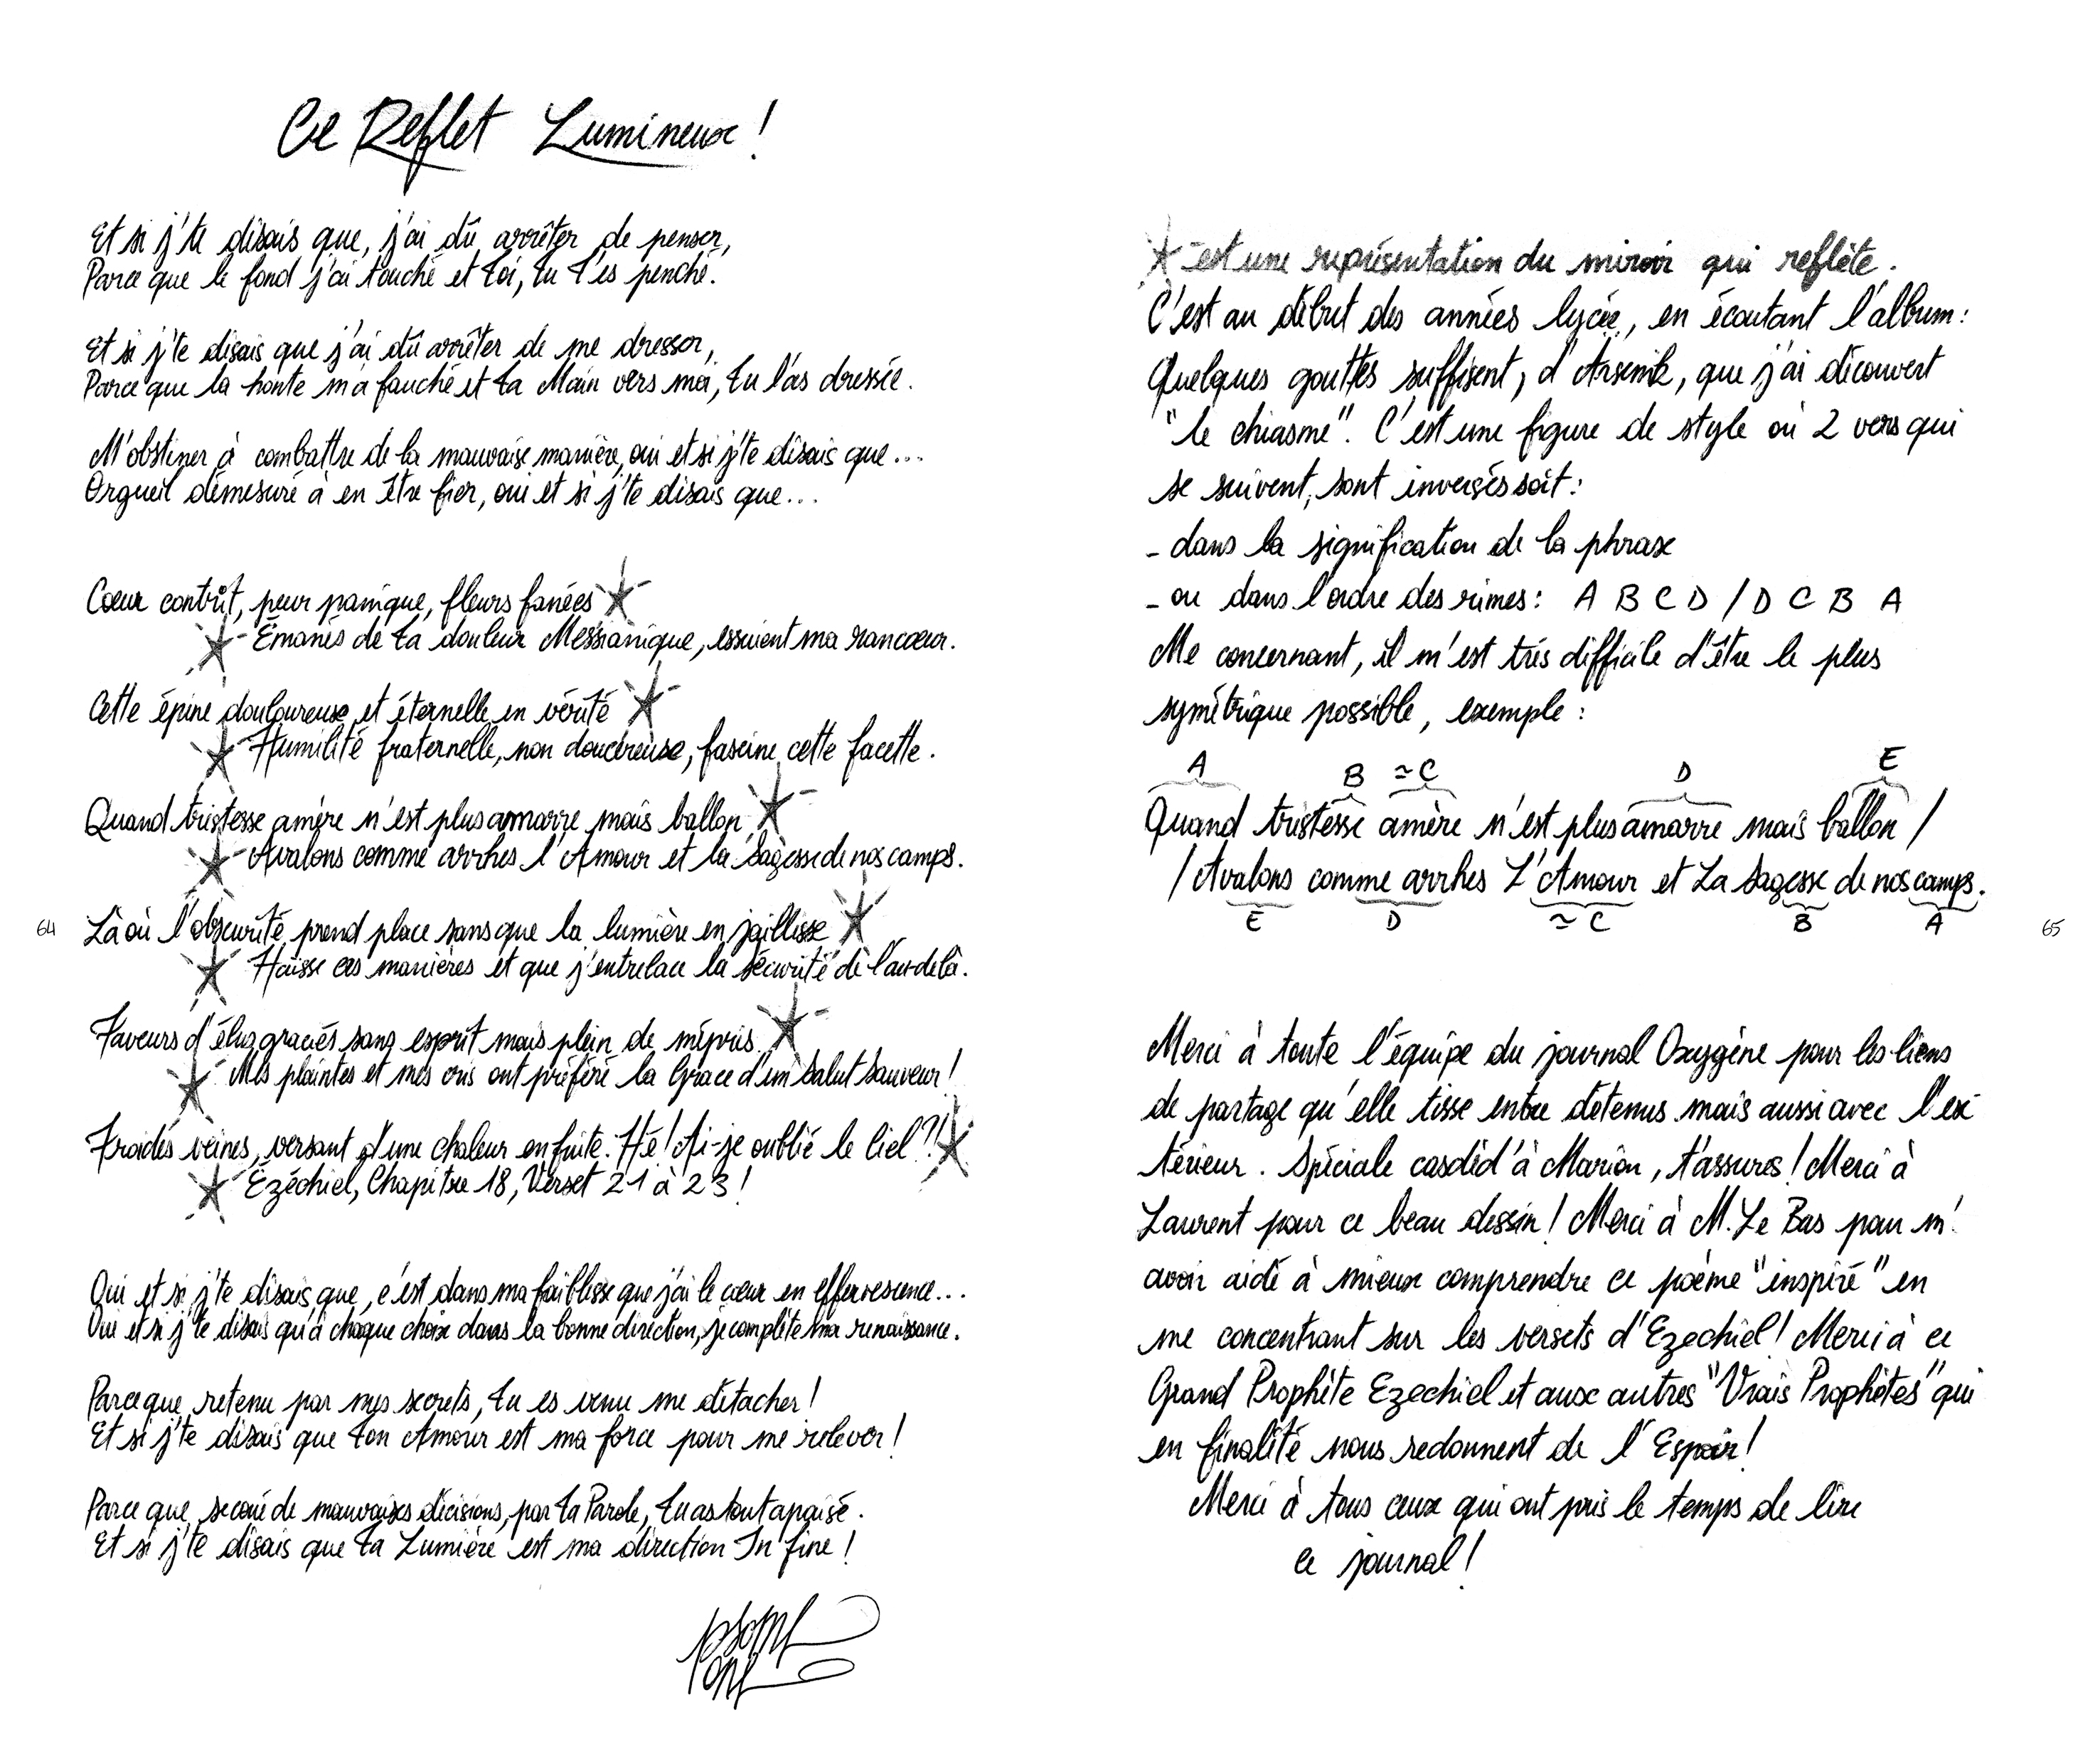 Ce Reflet Lumineux !
Et si j'te disais que, j'ai dû arrêter de penser,
Parce que le fond j'ai touché et toi, tu t'es penché.
Et si j'te disais que j'ai dû arrêter de me dresser,
Parce que la honte m'a fauché et ta Main vers moi, tu l'as dressée.
M'obstiner à combattre de la mauvaise manière, oui et si j'te disais que...
Orgueil démesuré à en être fier, oui et si j'te disais que...
Cœur contrit, peur panique, fleurs fanées
Émanés de ta douleur Messianique, essuient ma rancœur.
Cette épine douloureuse et éternelle en vérité
Humilité fraternelle, non doucereuse, fascine cette facette.
Quand tristesse amère n'est plus amarre mais ballon
Avalons comme arrhes l'Amour et la Sagesse de nos camps.
Là où l'obscurité prend place sans que la lumière en jaillisse
Haïsse ces manières et que j'entrelace la sécurité de l'au-delà.
Faveurs d'élus graciés sans esprit mais plein de mépris
Mes plaintes et mes cris ont préféré la Grace d'un Salut Sauveur !
Froides veines, versant d'une chaleur en fuite. Hé ! Ai-je oublié le Ciel ?!
Ézéchiel, Chapitre 18, Verset 21 à 23 !
Oui et si j'te disais que, c'est dans ma faiblesse que j'ai le cœur en effervescence...
Oui et si j'te disais qu'à chaque choix dans la bonne direction, je complète ma renaissance.
Parce que retenu par mes secrets, tu es venu me détacher !
Et si j'te disais que ton Amour est ma force pour me relever !
Parce que secoué de mauvaises décisions, par ta Parole, tu as tout apaisé.
Et si j'te disais que ta Lumière est ma direction In fine !
64
- est une représentation du miroir qui reflète.
C'est au début des années lycée, en écoutant l'album :
Quelques gouttes suffisent, d'Arsenik, que j'ai découvert
"le chiasme". C'est une figure de style où 2 vers qui
se suivent, sont inversés soit :
- dans la signification de la phrase
- ou dans l'ordre des rimes : A B C D / D C B A
Me concernant, il m'est très difficile d'être le plus
symétrique possible, exemple :
A B ≃ C D E
Quand tristesse amère n'est plus amarre mais ballon /
/ Avalons comme arrhes L'Amour et La Sagesse de nos camps.
E D ≃ C B A
65
Merci à toute l'équipe du journal Oxygène pour les liens
de partage qu'elle tisse entre détenus mais aussi avec l'ex-
térieur. Spéciale casdéd' à Marion, t'assures ! Merci à
Laurent pour ce beau dessin ! Merci à M. Le Bas pour m'
avoir aidé à mieux comprendre ce poème "inspiré" en
me concentrant sur les versets d'Ezechiel ! Merci à ce
Grand Prophète Ezechiel et aux autres "Vrais Prophètes" qui
en finalité nous redonnent de l'Espoir !
Merci à tous ceux qui ont pris le temps de lire
ce journal !